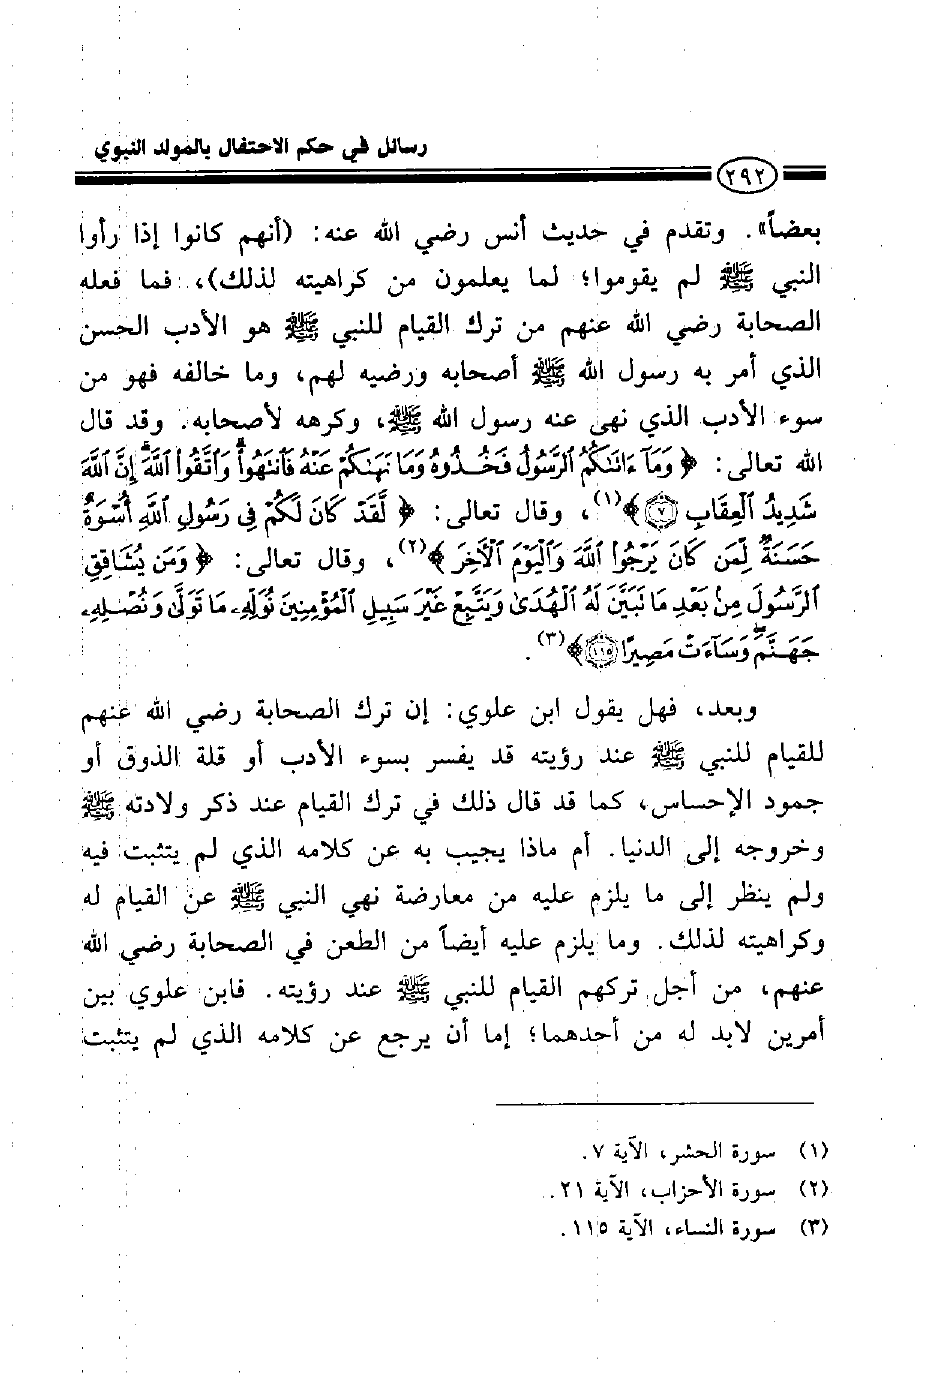 رسائل في حكم الاحتفال بالمولد النبوي
٢٩٢
بعضاً». وتقدم في حديث أنس رضي الله عنه: (أنهم كانوا إذا رأوا
النبي ﷺ لم يقوموا؛ لما يعلمون من كراهيته لذلك)، فما فعله
الصحابة رضي الله عنهم من ترك القيام للنبي ﷺ هو الأدب الحسن
الذي أمر به رسول الله ﷺ أصحابه ورضيه لهم، وما خالفه فهو من
سوء الأدب الذي نهى عنه رسول الله ﷺ، وكرهه لأصحابه. وقد قال
الله تعالى: ﴿ وَمَآ ءَاتَىٰكُمُ ٱلرَّسُولُ فَخُذُوهُ وَمَا نَهَىٰكُمْ عَنْهُ فَٱنتَهُوا۟ ۚ وَٱتَّقُوا۟ ٱللَّهَ ۖ إِنَّ ٱللَّهَ
شَدِيدُ ٱلْعِقَابِ ٧ ﴾(١)، وقال تعالى: ﴿ لَّقَدْ كَانَ لَكُمْ فِى رَسُولِ ٱللَّهِ أُسْوَةٌ
حَسَنَةٌ لِّمَن كَانَ يَرْجُوا۟ ٱللَّهَ وَٱلْيَوْمَ ٱلْءَاخِرَ ﴾(٢)، وقال تعالى: ﴿ وَمَن يُشَاقِقِ
ٱلرَّسُولَ مِنۢ بَعْدِ مَا تَبَيَّنَ لَهُ ٱلْهُدَىٰ وَيَتَّبِعْ غَيْرَ سَبِيلِ ٱلْمُؤْمِنِينَ نُوَلِّهِۦ مَا تَوَلَّىٰ وَنُصْلِهِۦ
جَهَنَّمَ ۖ وَسَآءَتْ مَصِيرًا ١١٥ ﴾(٣).
وبعد، فهل يقول ابن علوي: إن ترك الصحابة رضي الله عنهم
للقيام للنبي ﷺ عند رؤيته قد يفسر بسوء الأدب أو قلة الذوق أو
جمود الإحساس، كما قد قال ذلك في ترك القيام عند ذكر ولادته ﷺ
وخروجه إلى الدنيا. أم ماذا يجيب به عن كلامه الذي لم يتثبت فيه
ولم ينظر إلى ما يلزم عليه من معارضة نهي النبي ﷺ عن القيام له
وكراهيته لذلك. وما يلزم عليه أيضاً من الطعن في الصحابة رضي الله
عنهم، من أجل تركهم القيام للنبي ﷺ عند رؤيته. فابن علوي بين
أمرين لابد له من أحدهما؛ إما أن يرجع عن كلامه الذي لم يتثبت
(١) سورة الحشر، الآية ٧.
(٢) سورة الأحزاب، الآية ٢١.
(٣) سورة النساء، الآية ١١٥.